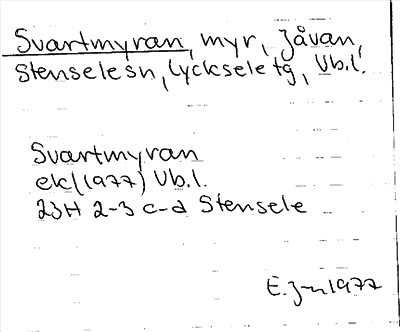 Svartmyran, myr, Jåvan,
Stenselesn, Lycksele tg, Vb.l.
Svartmyran
ek (1977) Vb.l.
23H 2-3 c-d Stensele
E. J-n 1977